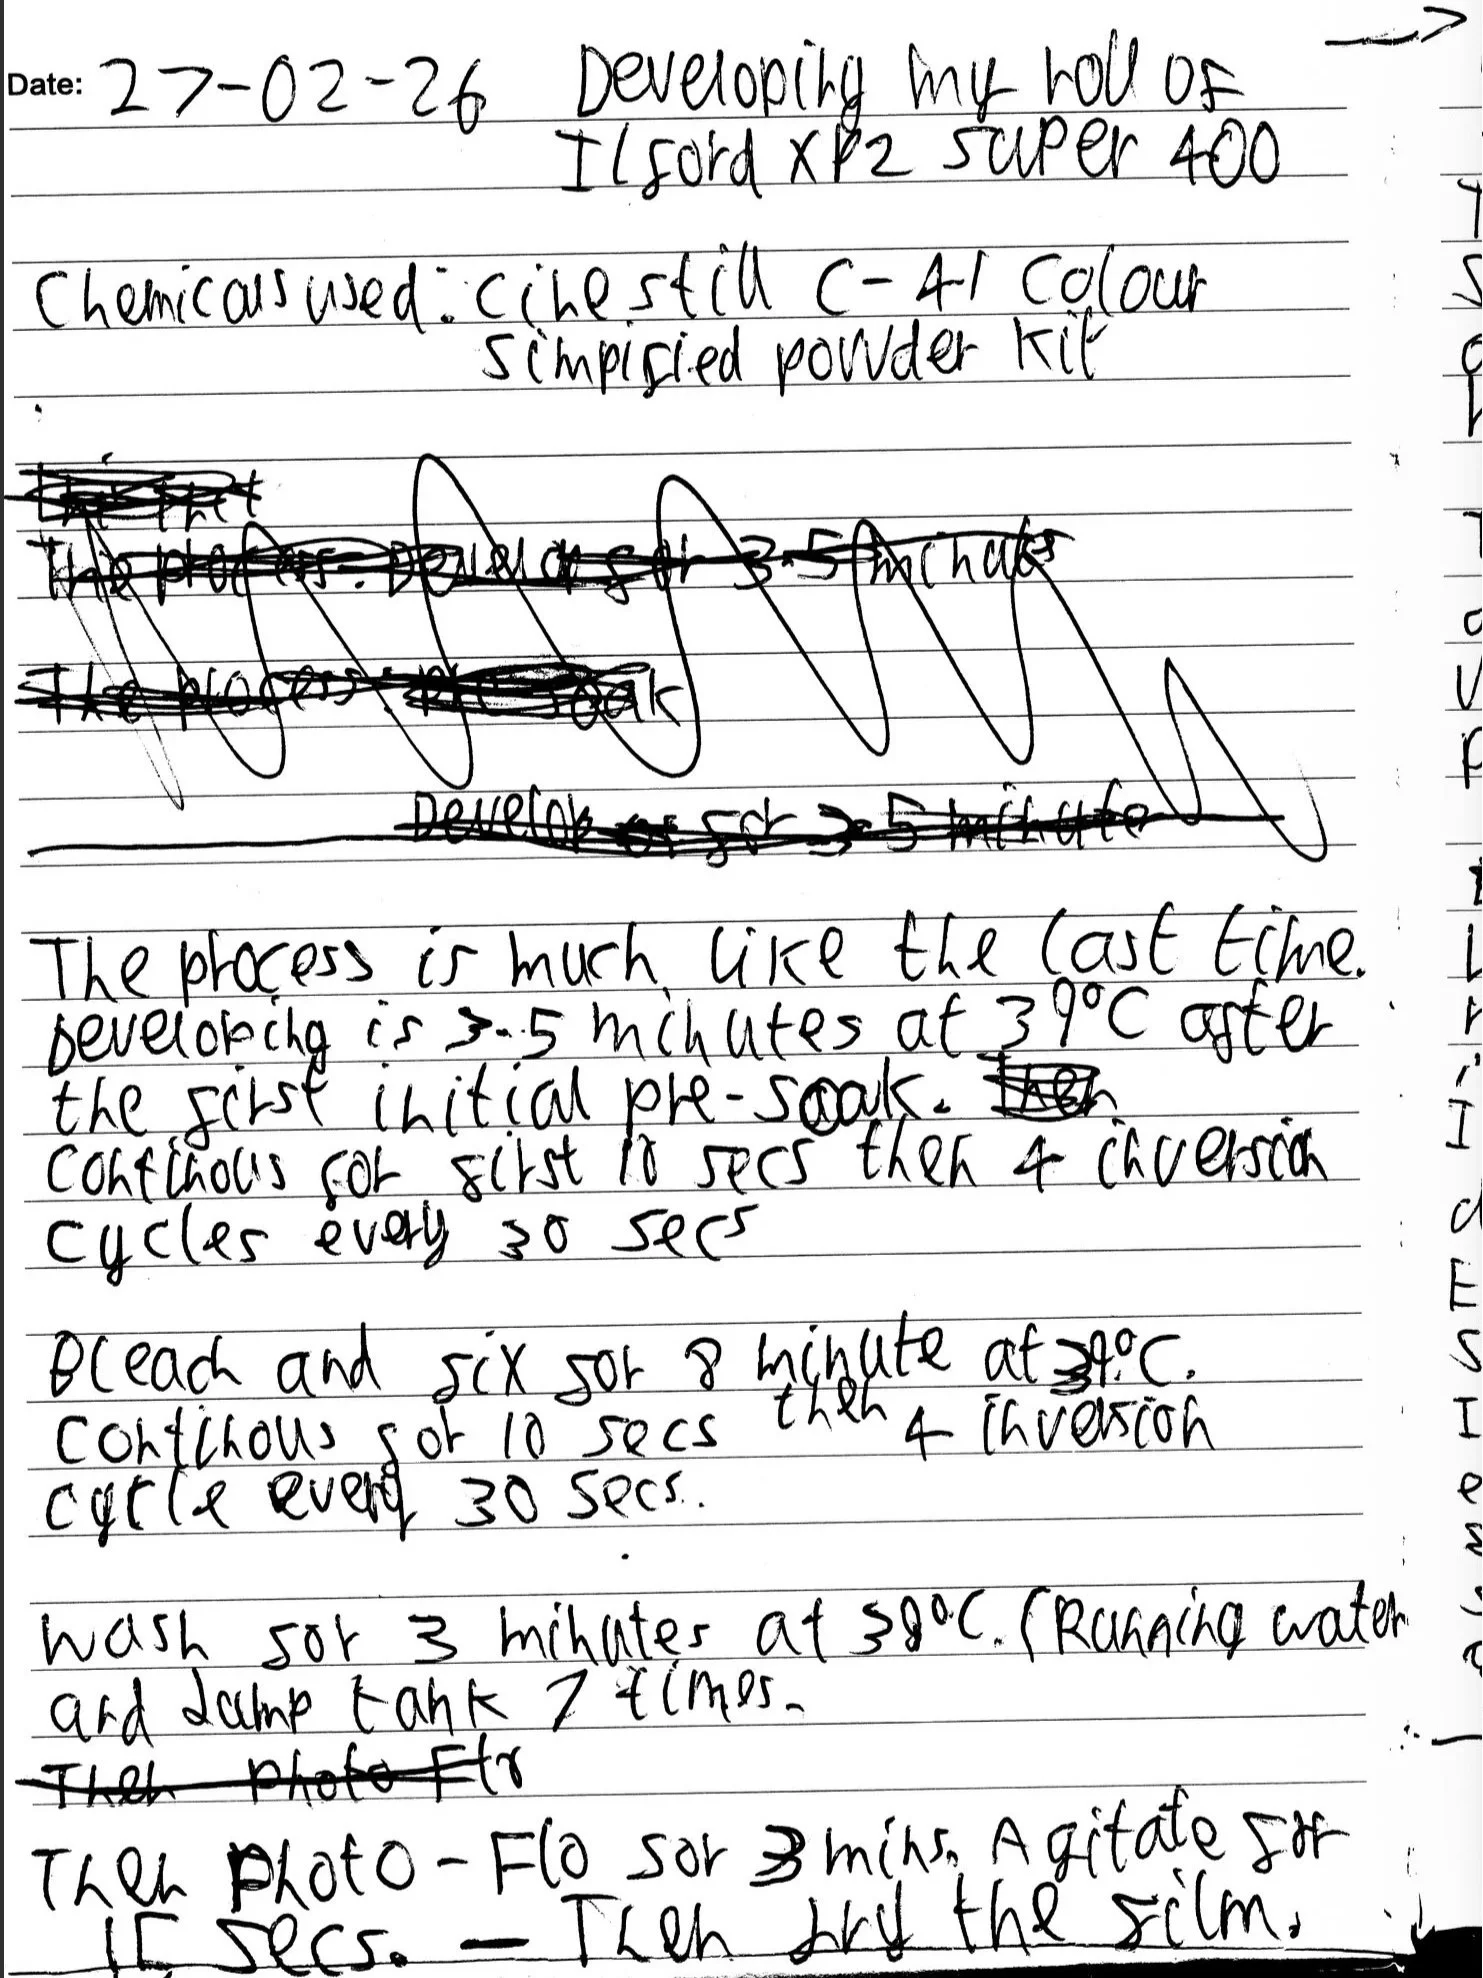 Date: 27-02-26 Developing my roll of
Ilford XP2 super 400
Chemicals used: cinestill C-41 Colour
simplified powder kit
The process: Develop for 3.5 minutes
The process: pre soak
Develop for 3.5 minute
The process is much like the last time.
Developing is 3.5 minutes at 39°C after
the first initial pre-soak. Then
Continous for first 10 secs then 4 inversion
cycles every 30 secs
Bleach and fix for 8 minute at 39°C.
Continous for 10 secs then 4 inversion
cycle every 30 secs.
Wash for 3 minutes at 38°C. (Running water
and dump tank 7 times.
Then Photo Flo
Then Photo-Flo for 3 mins. Agitate for
15 secs. — Then dry the film.